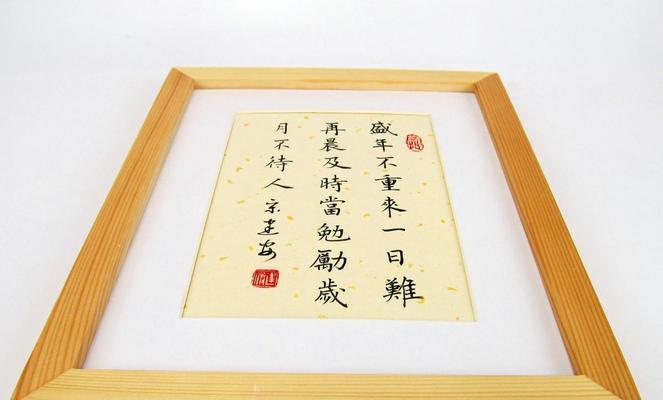 盛年不重來一日難
再晨及時當勉勵歲
月不待人